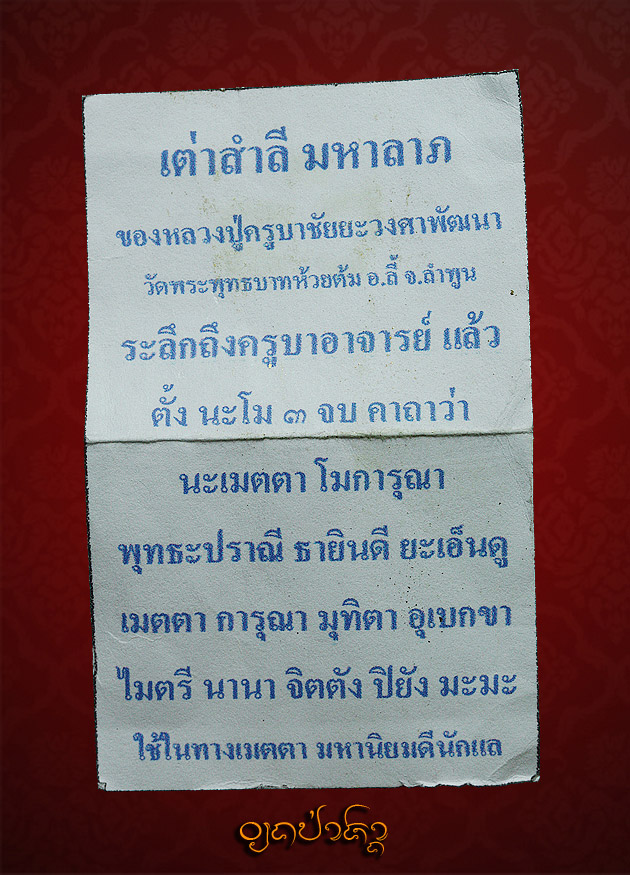 เต่าสำลี มหาลาภ
ของหลวงปู่ครูบาชัยยะวงศาพัฒนา
วัดพระพุทธบาทห้วยต้ม อ.ลี้ จ.ลำพูน
ระลึกถึงครูบาอาจารย์ แล้ว
ตั้ง นะโม ๓ จบ คาถาว่า
นะเมตตา โมการุณา
พุทธะปราณี ธายินดี ยะเอ็นดู
เมตตา การุณา มุทิตา อุเบกขา
ไมตรี นานา จิตตัง ปิยัง มะมะ
ใช้ในทางเมตตา มหานิยมดีนักแล